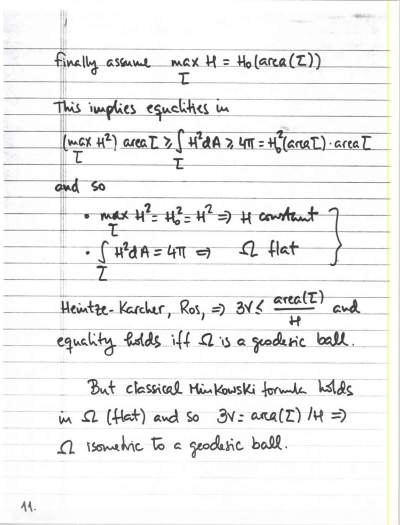 finally assume max H = H₀(area(Σ))
Σ
This implies equalities in
(max H²) area Σ ≥ ∫ H²dA ≥ 4π = H₀²(area Σ)·area Σ
Σ Σ
and so
• max H² = H₀² = H² ⇒ H constant
Σ
• ∫ H²dA = 4π ⇒ Ω flat }
Σ
Heintze-Karcher, Ros, ⇒ 3V ≤ area(Σ)/H and
equality holds iff Ω is a geodesic ball.
But classical Minkowski formula holds
in Ω (flat) and so 3V = area(Σ)/H ⇒
Ω isometric to a geodesic ball.
11.